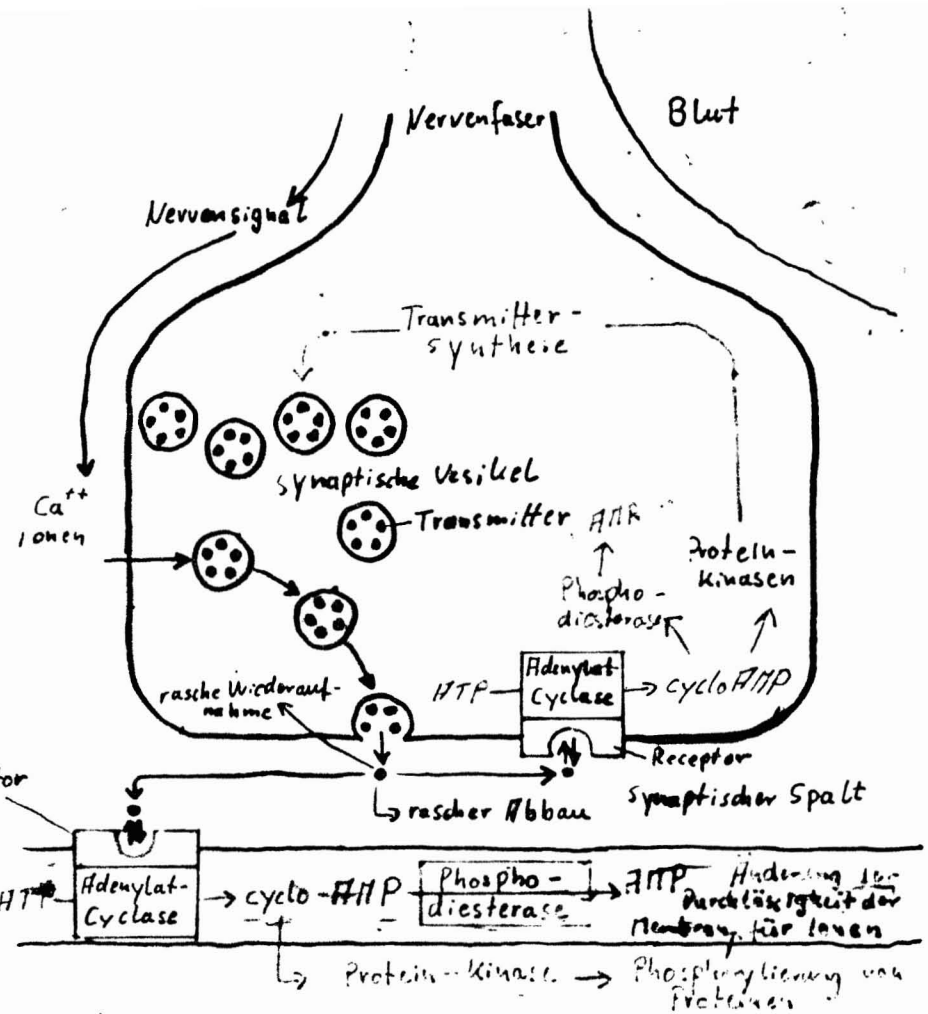 Nervenfaser
Blut
Nervensignal
Transmitter-
synthese
synaptische Vesikel
Ca++
ionen
Transmitter
AMP
Protein-
kinasen
Phospho-
diesterase
rasche Wiederauf-
nahme
ATP
Adenylat-
Cyclase
cycloAMP
Receptor
synaptischer Spalt
rascher Abbau
tor
ATP
Adenylat-
Cyclase
cyclo-AMP
Phospho-
diesterase
AMP
Änderung der
Durchlässigkeit der
Membran für Ionen
Protein-kinase
Phosphorylierung von
Proteinen